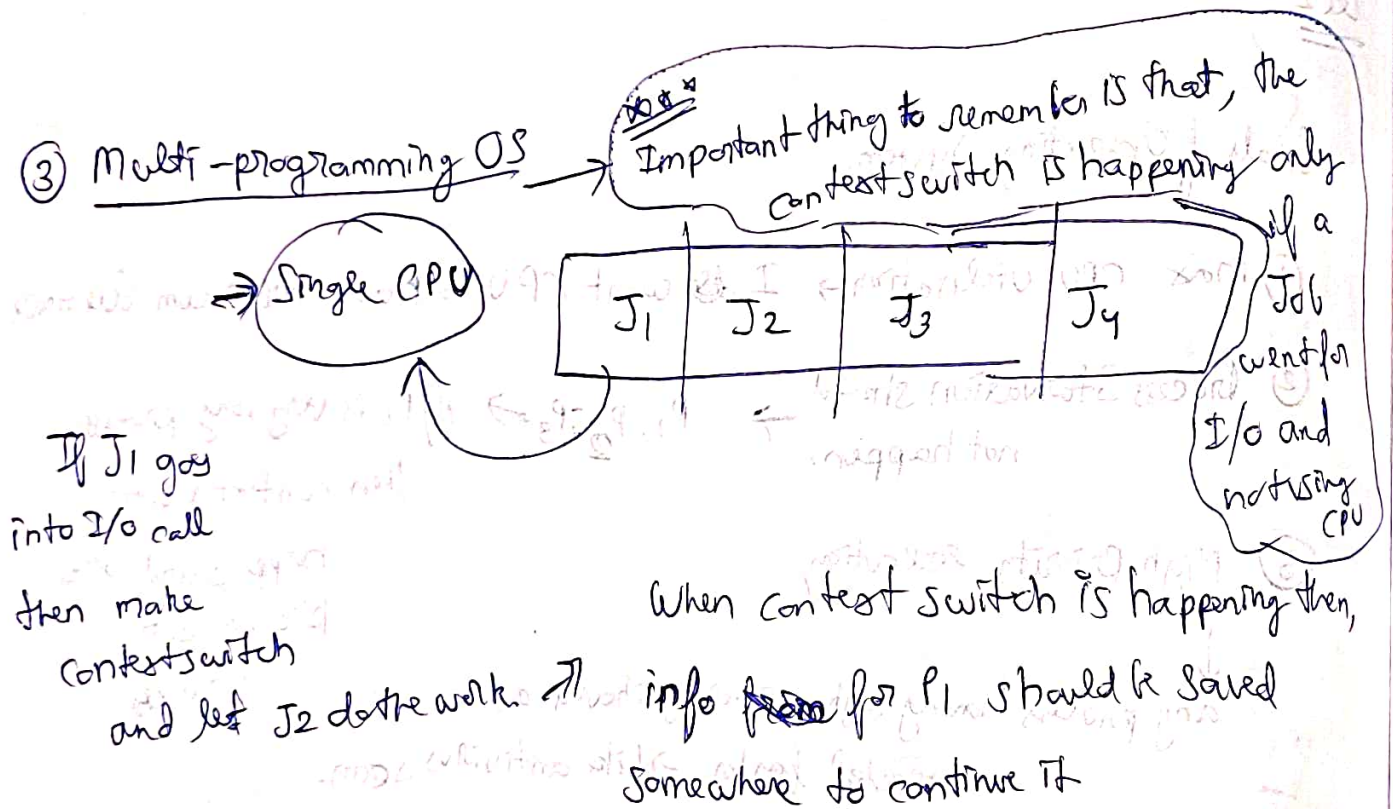 ③ Multi-programming OS →
***
Important thing to remember is that, the
context switch is happening only
if a
Job
went for
I/O and
not using
CPU
→ Single CPU
J1 J2 J3 J4
If J1 goes
into I/O call
then make
context switch
and let J2 do the work. →
When context switch is happening then,
info for P1 should be saved
somewhere to continue it